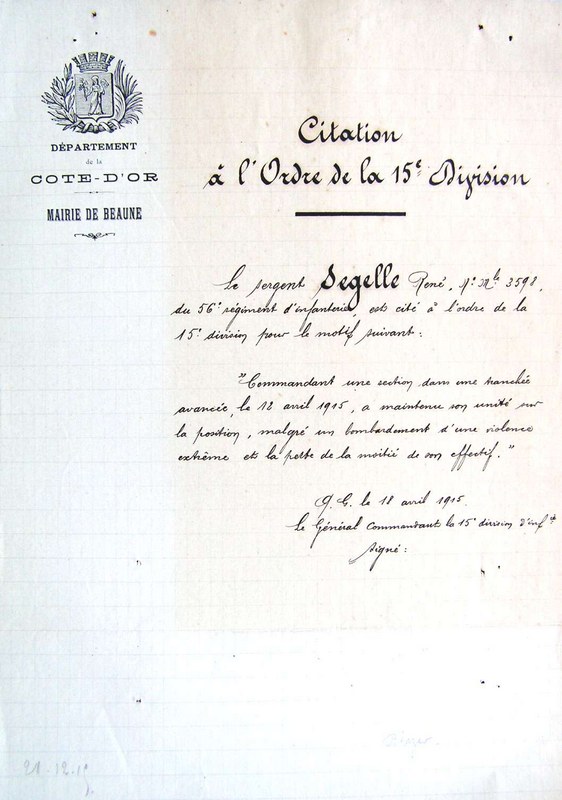 DÉPARTEMENT
de la
COTE-D'OR
MAIRIE DE BEAUNE
Citation
à l'Ordre de la 15e Division
Le sergent Segelle René, No Mle 3598,
du 56e régiment d'infanterie, est cité à l'ordre de la
15e division pour le motif suivant :
"Commandant une section dans une tranchée
avancée, le 12 avril 1915, a maintenu son unité sur
la position, malgré un bombardement d'une violence
extrême et la perte de la moitié de son effectif."
Q. G. le 18 avril 1915.
Le Général Commandant la 15e division d'infie
signé :
21.12.